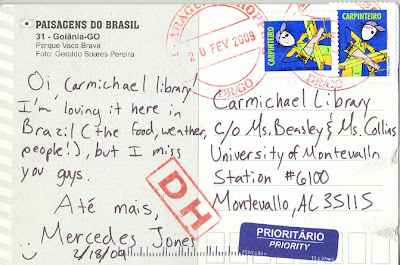 PAISAGENS DO BRASIL
31 - Goiânia-GO
Parque Vaca Brava
Foto: Geraldo Soares Pereira
20 FEV 2009
CARPINTEIRO
CARPINTEIRO
Oi Carmichael library!
I'm loving it here in
Brazil (the food, weather,
people!), but I miss
you guys.
Até mais,
Mercedes Jones
2/18/09
Carmichael Library
c/o Ms. Beasley & Ms. Collins
University of Montevallo
Station #6100
Montevallo, AL 35115
DH
PRIORITÁRIO
PRIORITY